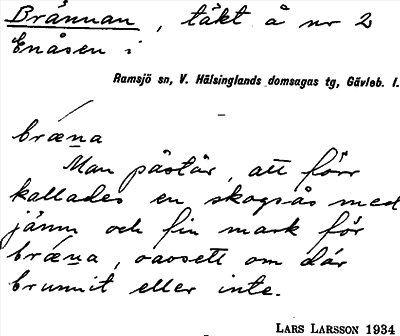 Brännan, täkt å nr 2
Enåsen i
Ramsjö sn, V. Hälsinglands domsagas tg, Gävleb. l.
bræna
Man påstår, att förr
kallades en skogsås med
jämn och fin mark för
bræna, oavsett om där
brunnit eller inte.
LARS LARSSON 1934